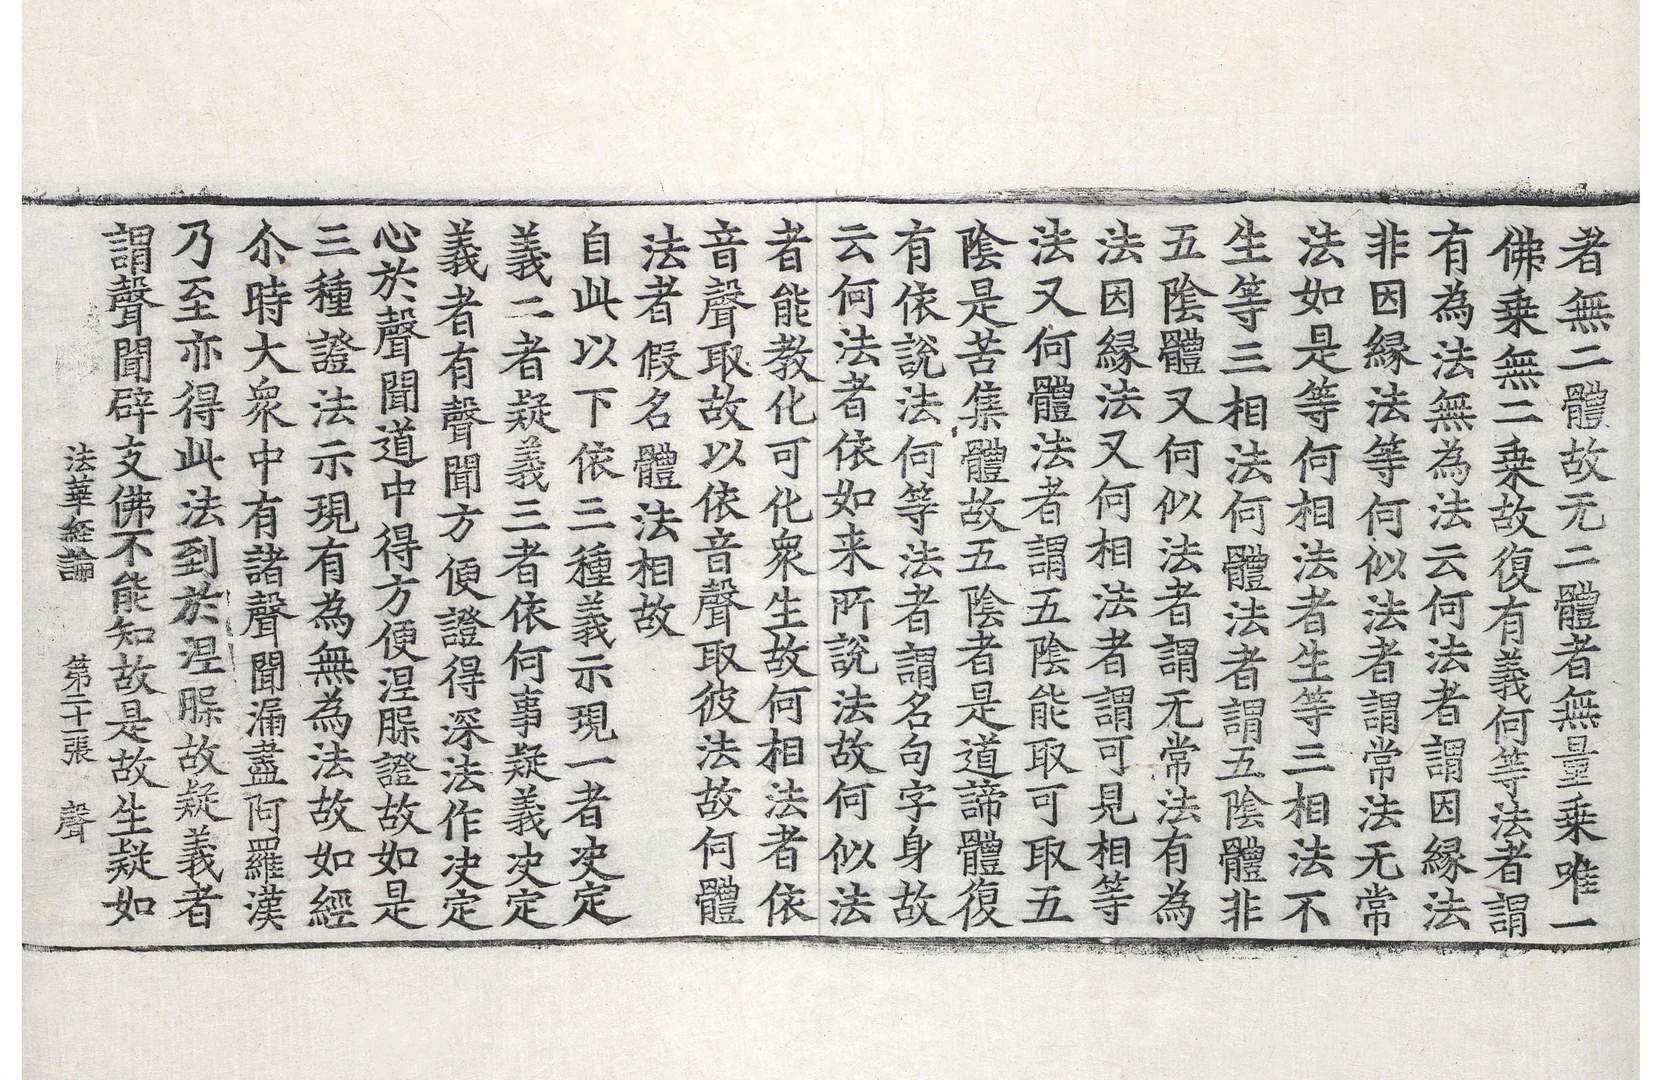 者無二體故无二體者無量乗唯一
佛乗無二乗故復有義何等法者謂
有為法無為法云何法者謂因縁法
非因縁法等何似法者謂常法无常
法如是等何相法者生等三相法不
生等三相法何體法者謂五陰體非
五陰體又何似法者謂无常法有為
法因縁法又何相法者謂可見相等
法又何體法者謂五陰能取可取五
陰是苦集體故五陰者是道諦體復
有依說法何等法者謂名句字身故
云何法者依如来所說法故何似法
者能教化可化衆生故何相法者依
音聲取故以依音聲取彼法故何體
法者假名體法相故
自此以下依三種義示現一者決定
義二者疑義三者依何事疑義決定
義者有聲聞方便證得深法作決定
心於聲聞道中得方便涅槃證故如是
三種證法示現有為無為法故如經
尒時大衆中有諸聲聞漏盡阿羅漢
乃至亦得此法到於涅槃故疑義者
謂聲聞辟支佛不能知故是故生疑如
法華經論 第二十一張 聲